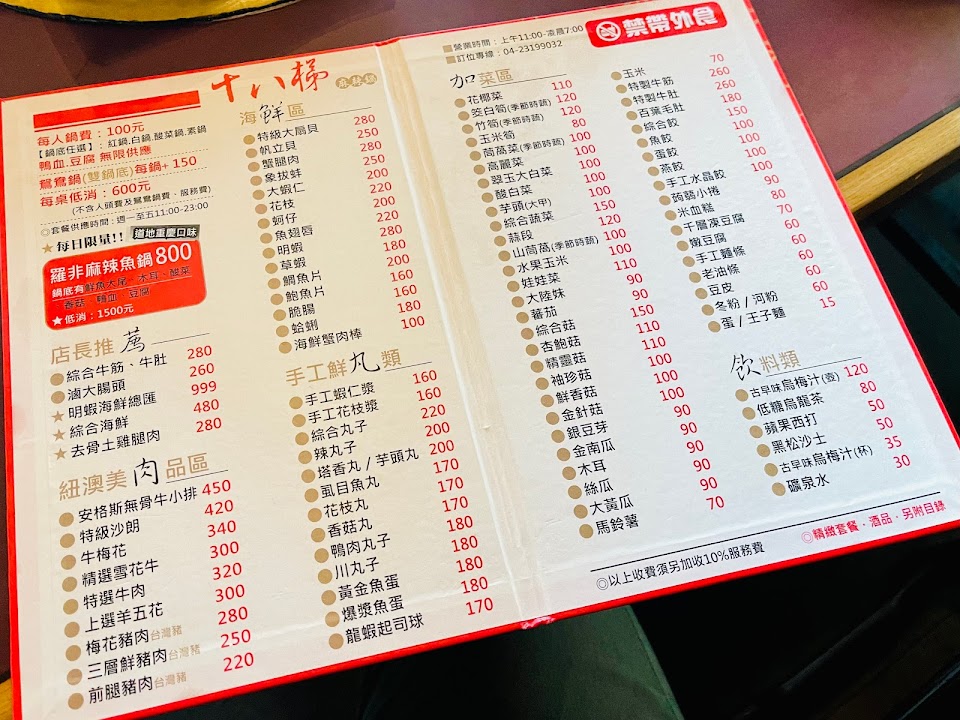 十八梯
麻辣鍋
每人鍋費：100元
【鍋底任選】：紅鍋.白鍋.酸菜鍋.素鍋
鴨血.豆腐 無限供應
鴛鴦鍋(雙鍋底)每鍋+ 150
每桌低消：600元
(不含人頭費及鴛鴦鍋費、服務費)
◎套餐供應時間：週一至五11:00-23:00
★每日限量!! 道地重慶口味
羅非麻辣魚鍋800
鍋底有鮮魚大尾、木耳、酸菜
香菇、鴨血、豆腐
★低消：1500元
店長推薦
綜合牛筋、牛肚 280
滷大腸頭 260
★明蝦海鮮總匯 999
★綜合海鮮 480
★去骨土雞腿肉 280
紐澳美肉品區
安格斯無骨牛小排 450
特級沙朗 420
牛梅花 340
精選雪花牛 300
特選牛肉 320
上選羊五花 300
梅花豬肉台灣豬 280
三層鮮豬肉台灣豬 250
前腿豬肉台灣豬 220
海鮮區
特級大扇貝 280
帆立貝 250
蟹腿肉 280
象拔蚌 250
大蝦仁 200
花枝 220
蚵仔 200
魚翅唇 220
明蝦 280
草蝦 180
鯛魚片 160
鮑魚片 160
脆腸 160
蛤蜊 180
海鮮蟹肉棒 100
手工鮮丸類
手工蝦仁漿 160
手工花枝漿 160
綜合丸子 220
辣丸子 200
塔香丸 / 芋頭丸 200
虱目魚丸 170
花枝丸 170
香菇丸 170
鴨肉丸子 180
川丸子 180
黃金魚蛋 180
爆漿魚蛋 180
龍蝦起司球 170
營業時間：上午11:00-凌晨7:00
訂位專線：04-23199032
禁帶外食
加菜區
花椰菜 110
筊白筍(季節時蔬) 120
竹筍(季節時蔬) 120
玉米筍 80
茼萵菜(季節時蔬) 100
高麗菜 100
翠玉大白菜 100
酸白菜 100
芋頭(大甲) 100
綜合蔬菜 150
蒜段 120
山茼萵(季節時蔬) 100
水果玉米 100
娃娃菜 90
大陸妹 90
蕃茄 90
綜合菇 150
杏鮑菇 110
精靈菇 110
袖珍菇 100
鮮香菇 100
金針菇 100
銀豆芽 90
金南瓜 90
木耳 90
絲瓜 90
大黃瓜 90
馬鈴薯 70
玉米 70
特製牛筋 260
特製牛肚 260
百葉毛肚 180
綜合餃 100
魚餃 100
蛋餃 100
燕餃 100
手工水晶餃 100
蒟蒻小捲 90
米血糕 80
千層凍豆腐 70
嫩豆腐 60
手工麵條 60
老油條 60
豆皮 60
冬粉 / 河粉 60
蛋 / 王子麵 15
飲料類
古早味烏梅汁(壺) 120
低糖烏龍茶 80
蘋果西打 50
黑松沙士 50
古早味烏梅汁(杯) 35
礦泉水 30
◎以上收費須另加收10%服務費
◎精緻套餐．酒品．另附目錄